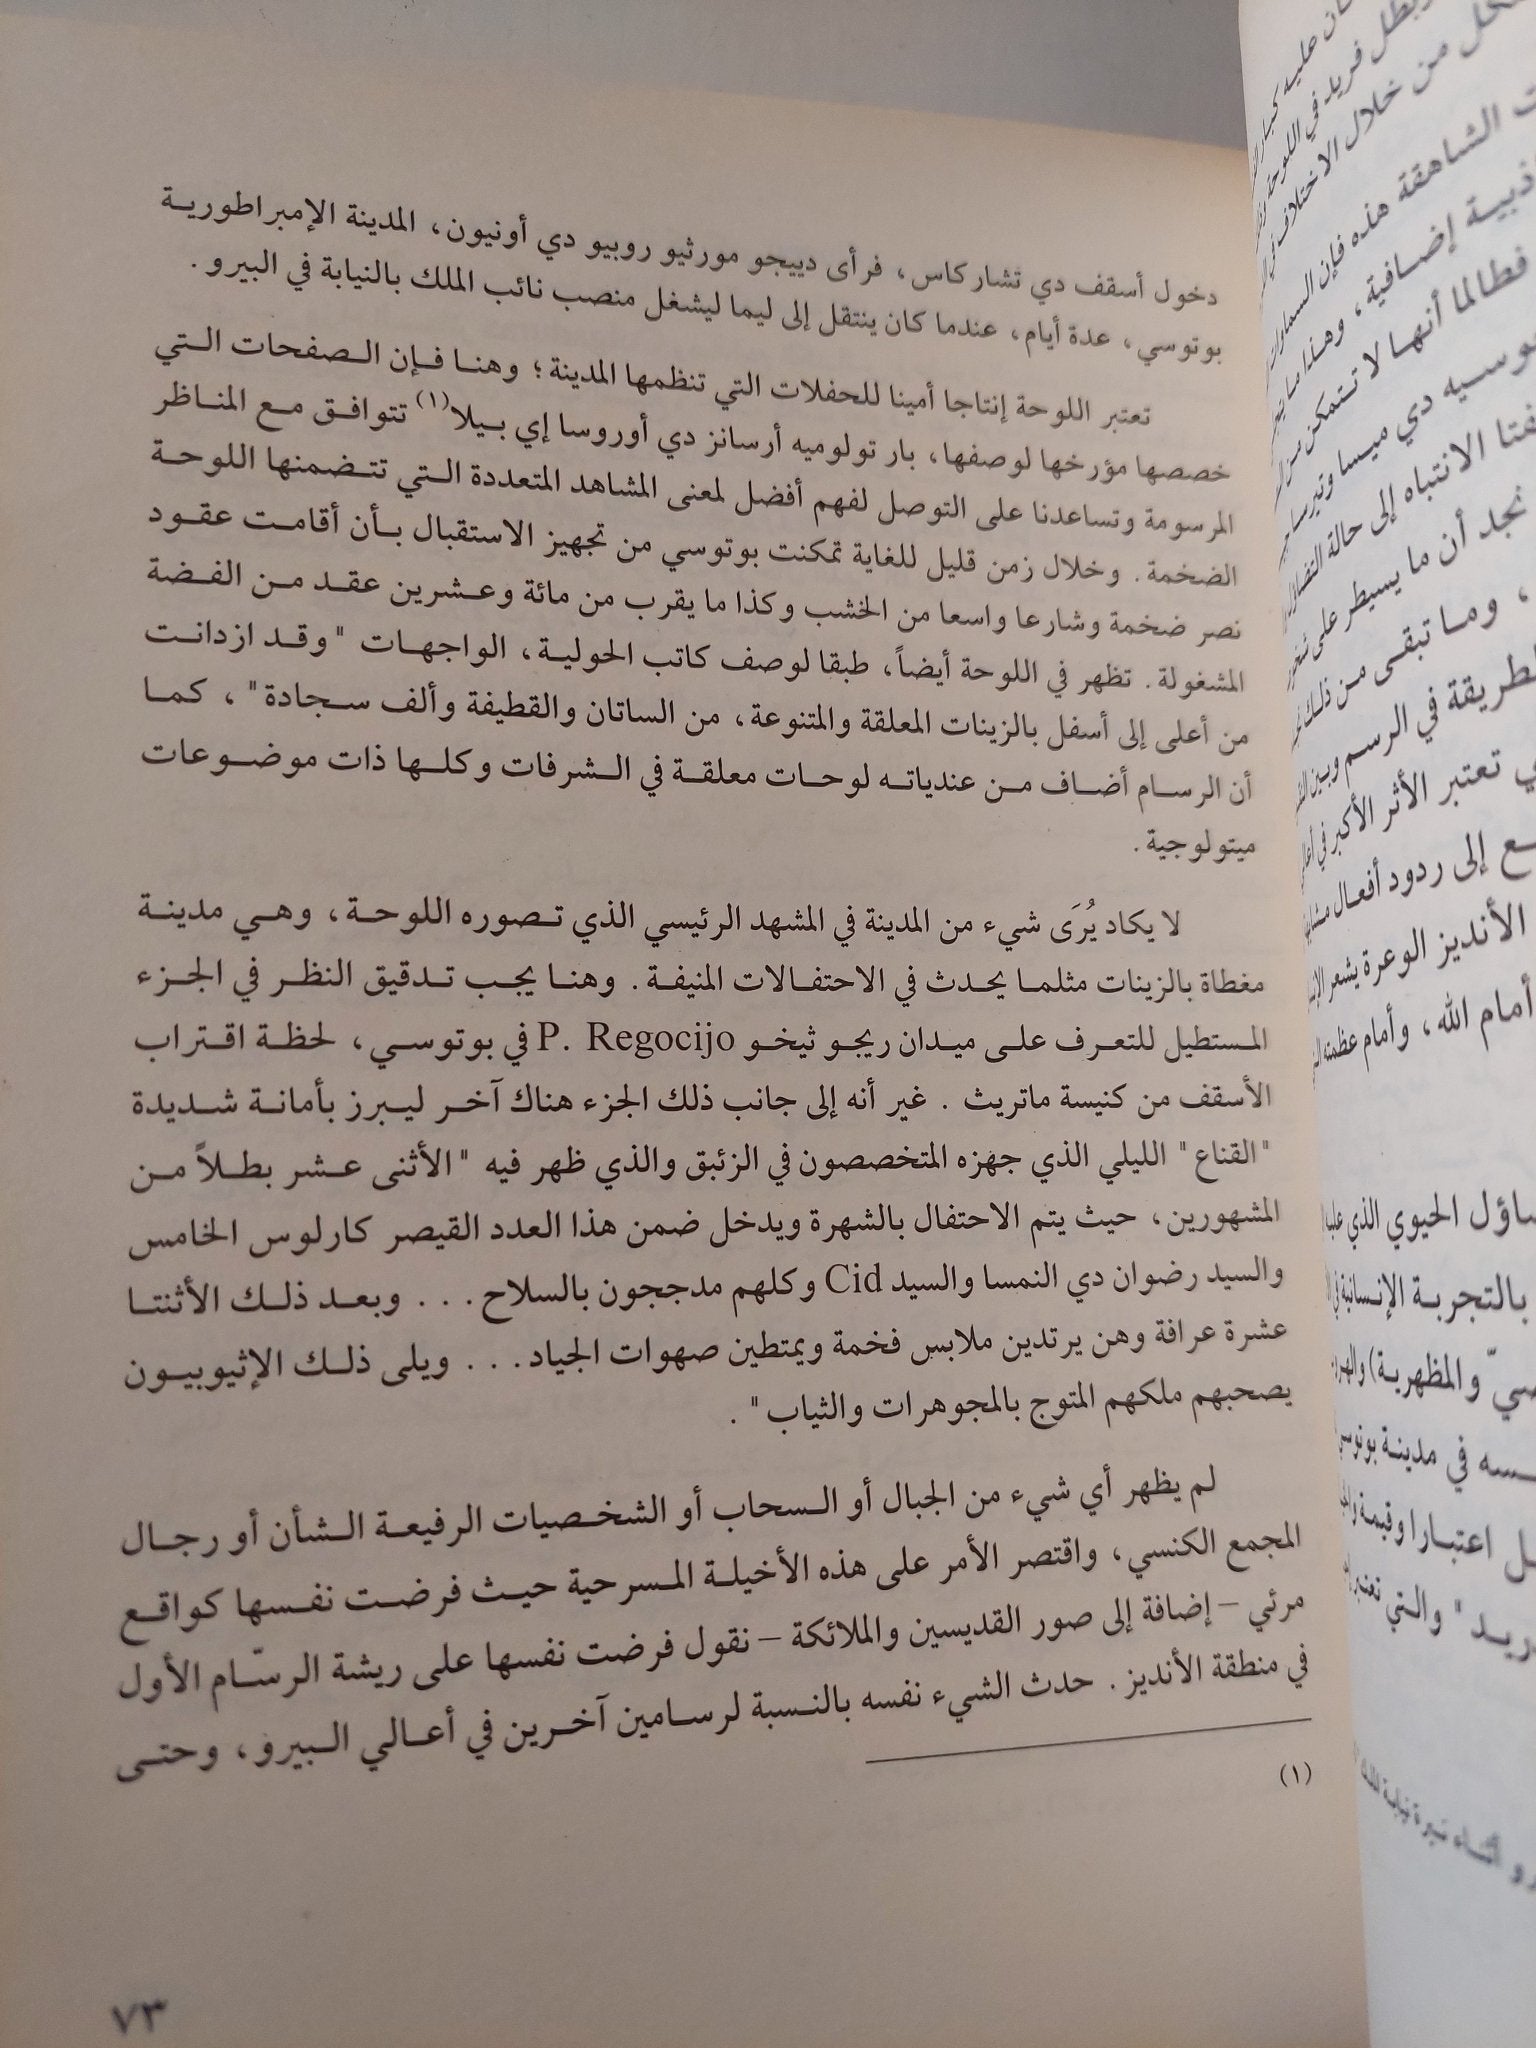 دخول أسقف دي تشاركاس، فرأى دييجو مورثيو روبيو دي أونيون، المدينة الإمبراطورية
بوتوسي، عدة أيام، عندما كان ينتقل إلى ليما ليشغل منصب نائب الملك بالنيابة في البيرو.
تعتبر اللوحة إنتاجا أمينا للحفلات التي تنظمها المدينة؛ وهنا فإن الصفحات التي
خصصها مؤرخها لوصفها، بار تولوميه أرسانز دي أوروسا إي بيلا(١) تتوافق مع المناظر
المرسومة وتساعدنا على التوصل لفهم أفضل لمعنى المشاهد المتعددة التي تتضمنها اللوحة
الضخمة. وخلال زمن قليل للغاية تمكنت بوتوسي من تجهيز الاستقبال بأن أقامت عقود
نصر ضخمة وشارعا واسعا من الخشب وكذا ما يقرب من مائة وعشرين عقد من الفضة
المشغولة. تظهر في اللوحة أيضاً، طبقا لوصف كاتب الحولية، الواجهات "وقد ازدانت
من أعلى إلى أسفل بالزينات المعلقة والمتنوعة، من الساتان والقطيفة وألف سجادة"، كما
أن الرسام أضاف من عندياته لوحات معلقة في الشرفات وكلها ذات موضوعات
ميتولوجية.
لا يكاد يُرَى شيء من المدينة في المشهد الرئيسي الذي تصوره اللوحة، وهي مدينة
مغطاة بالزينات مثلما يحدث في الاحتفالات المنيفة. وهنا يجب تدقيق النظر في الجزء
المستطيل للتعرف على ميدان ريجو ثيخو P. Regocijo في بوتوسي، لحظة اقتراب
الأسقف من كنيسة ماتريث . غير أنه إلى جانب ذلك الجزء هناك آخر ليبرز بأمانة شديدة
"القناع" الليلي الذي جهزه المتخصصون في الزئبق والذي ظهر فيه "الأثنى عشر بطلاً من
المشهورين، حيث يتم الاحتفال بالشهرة ويدخل ضمن هذا العدد القيصر كارلوس الخامس
والسيد رضوان دي النمسا والسيد Cid وكلهم مدججون بالسلاح... وبعد ذلك الأثنتا
عشرة عرافة وهن يرتدين ملابس فخمة ويمتطين صهوات الجياد... ويلى ذلك الإثيوبيون
يصحبهم ملكهم المتوج بالمجوهرات والثياب".
لم يظهر أي شيء من الجبال أو السحاب أو الشخصيات الرفيعة الشأن أو رجال
المجمع الكنسي، واقتصر الأمر على هذه الأخيلة المسرحية حيث فرضت نفسها كواقع
مرئي – إضافة إلى صور القديسين والملائكة – نقول فرضت نفسها على ريشة الرسّام الأول
في منطقة الأنديز. حدث الشيء نفسه بالنسبة لرسامين آخرين في أعالي البيرو، وحتى
(١)
٧٣
من خلال الاختلاف
الشاهقة هذه فإن السماوات
إضافية، وهذا ما
فطالما أنها لا تتمكن من
دي ميسا وتيريسا
الانتباه إلى حالة
نجد أن ما يسيطر على
، وما تبقى من ذلك
في الرسم وبين
تعتبر الأثر الأكبر في
إلى ردود أفعال
الأنديز الوعرة يشعر
أمام الله، وأمام عظمته
الحيوي الذي
بالتجربة الإنسانية في
والمظهرية)
في مدينة بوتوسي
اعتبارا وقيمة
" والتي تعتبر